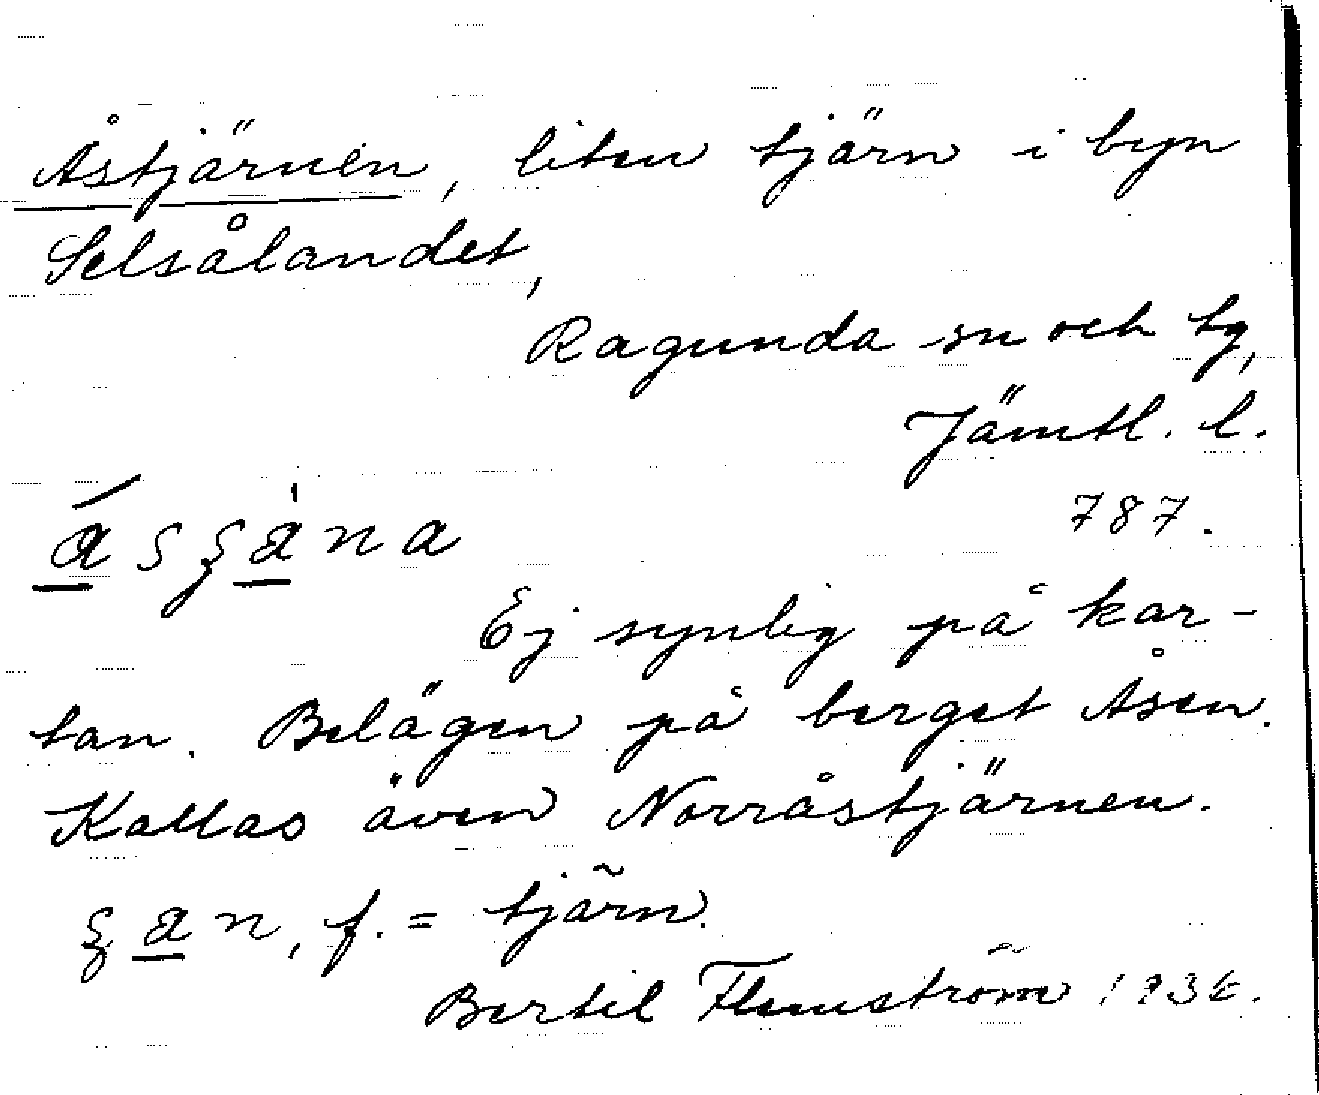 Åstjärnen, liten tjärn i byn
Selsålandet,
Ragunda sn och tg,
Jämtl. l.
787.
Ej synlig på kar-
tan. Belägen på berget Åsen.
Kallas även Norråstjärnen.
f. = tjärn.
Bertil Flemström